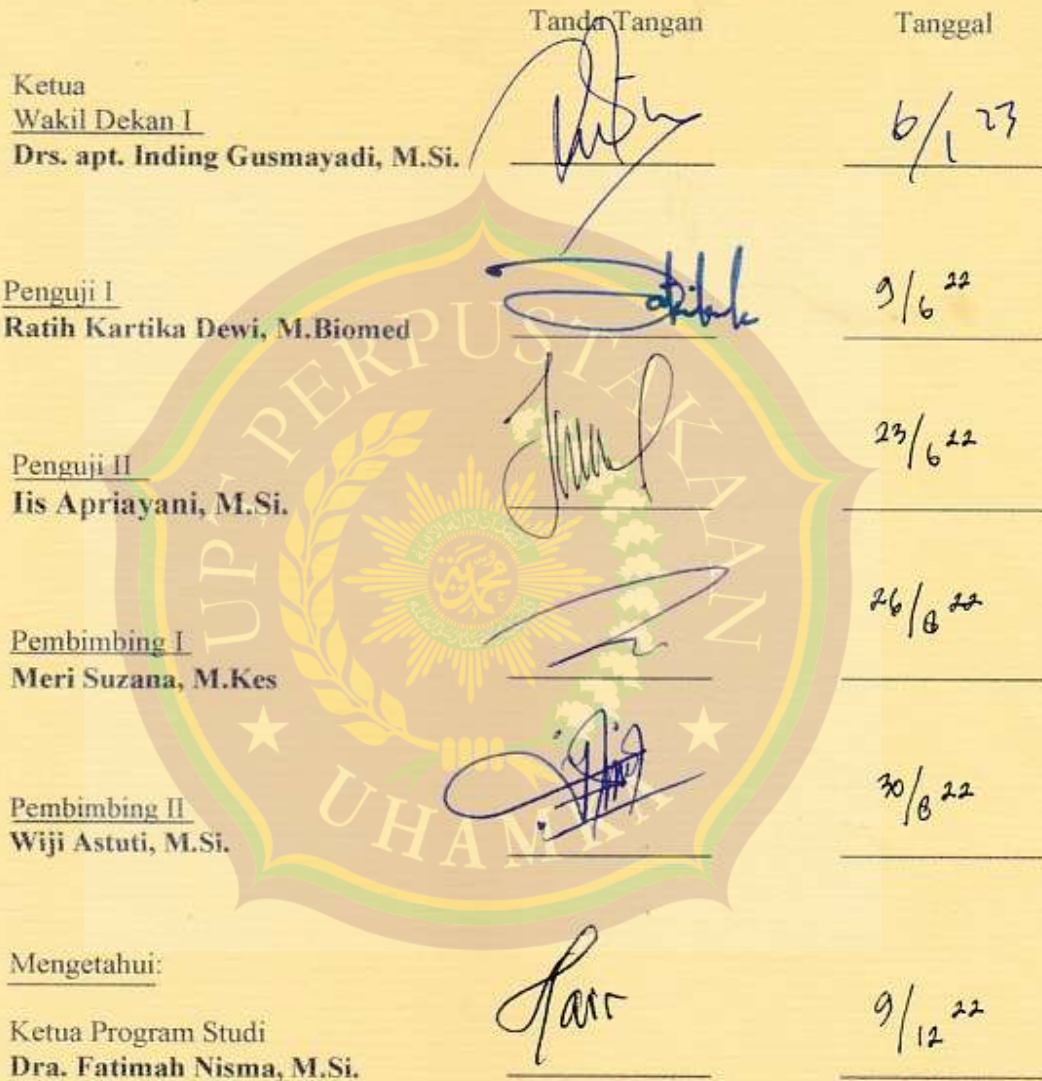 Tanda Tangan Tanggal
Ketua
Wakil Dekan I
Drs. apt. Inding Gusmayadi, M.Si. 6/1 23
Penguji I
Ratih Kartika Dewi, M.Biomed 9/6 22
Penguji II
Iis Apriayani, M.Si. 23/6 22
Pembimbing I
Meri Suzana, M.Kes 26/8 22
Pembimbing II
Wiji Astuti, M.Si. 30/8 22
Mengetahui:
Ketua Program Studi
Dra. Fatimah Nisma, M.Si. 9/12 22
UPT PERPUSTAKAAN
UHAMKA